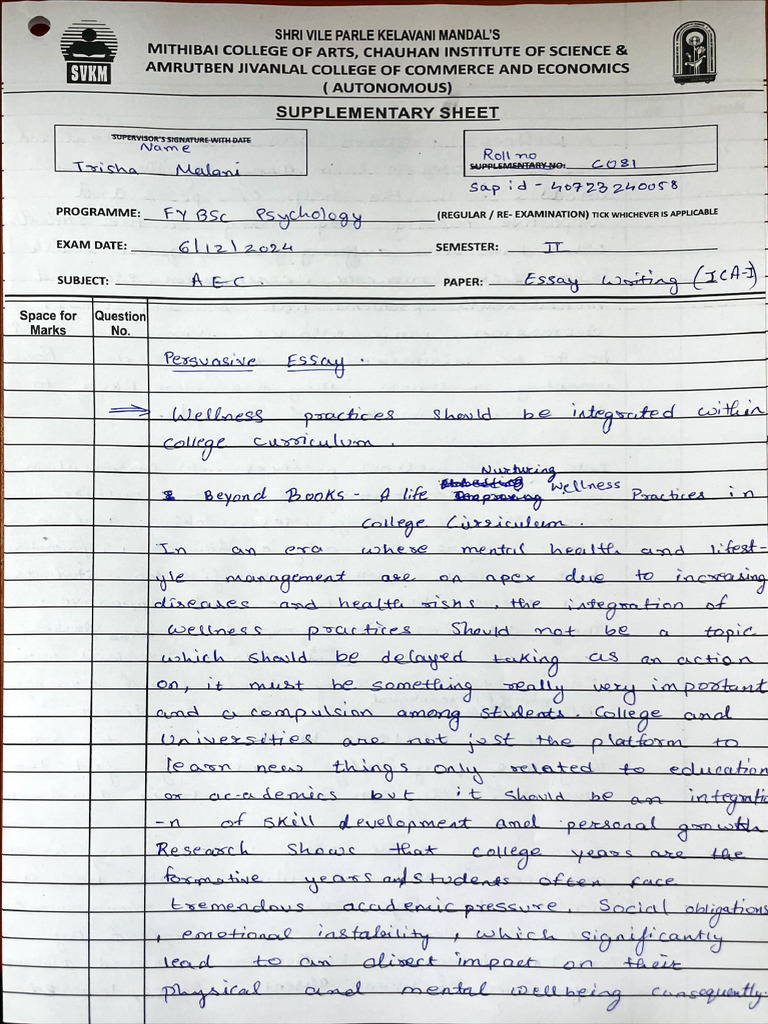 SHRI VILE PARLE KELAVANI MANDAL'S
MITHIBAI COLLEGE OF ARTS, CHAUHAN INSTITUTE OF SCIENCE &
AMRUTBEN JIVANLAL COLLEGE OF COMMERCE AND ECONOMICS
( AUTONOMOUS)
SVKM
SUPPLEMENTARY SHEET
SUPERVISOR'S SIGNATURE WITH DATE
Name
Trisha Malani
Roll no
SUPPLEMENTARY NO: C081
Sap id - 40723240058
PROGRAMME: FY BSc Psychology (REGULAR / RE- EXAMINATION) TICK WHICHEVER IS APPLICABLE
EXAM DATE: 6/12/2024 SEMESTER: II
SUBJECT: AEC. PAPER: Essay Writing (ICA-I)
Space for Marks Question No.
Persuasive Essay.
⇒ Wellness practices should be integrated within
college curriculum.
Nurturing
Beyond Books - A life Wellness Practices in
College Curriculum.
In an era where mental health and lifest-
yle management are on apex due to increasing
diseases and health risks, the integration of
wellness practices should not be a topic
which should be delayed taking as an action
on, it must be something really very important
and a compulsion among students. College and
Universities are not just the platform to
learn new things only related to education
or ac-ademics but it should be an integratio
-n of skill development and personal growth
Research shows that college years are the
formative years and students often face
tremendous academic pressure, Social obligations
, emotional instability, which significantly
lead to an direct impact on their
physical and mental wellbeing consequently.